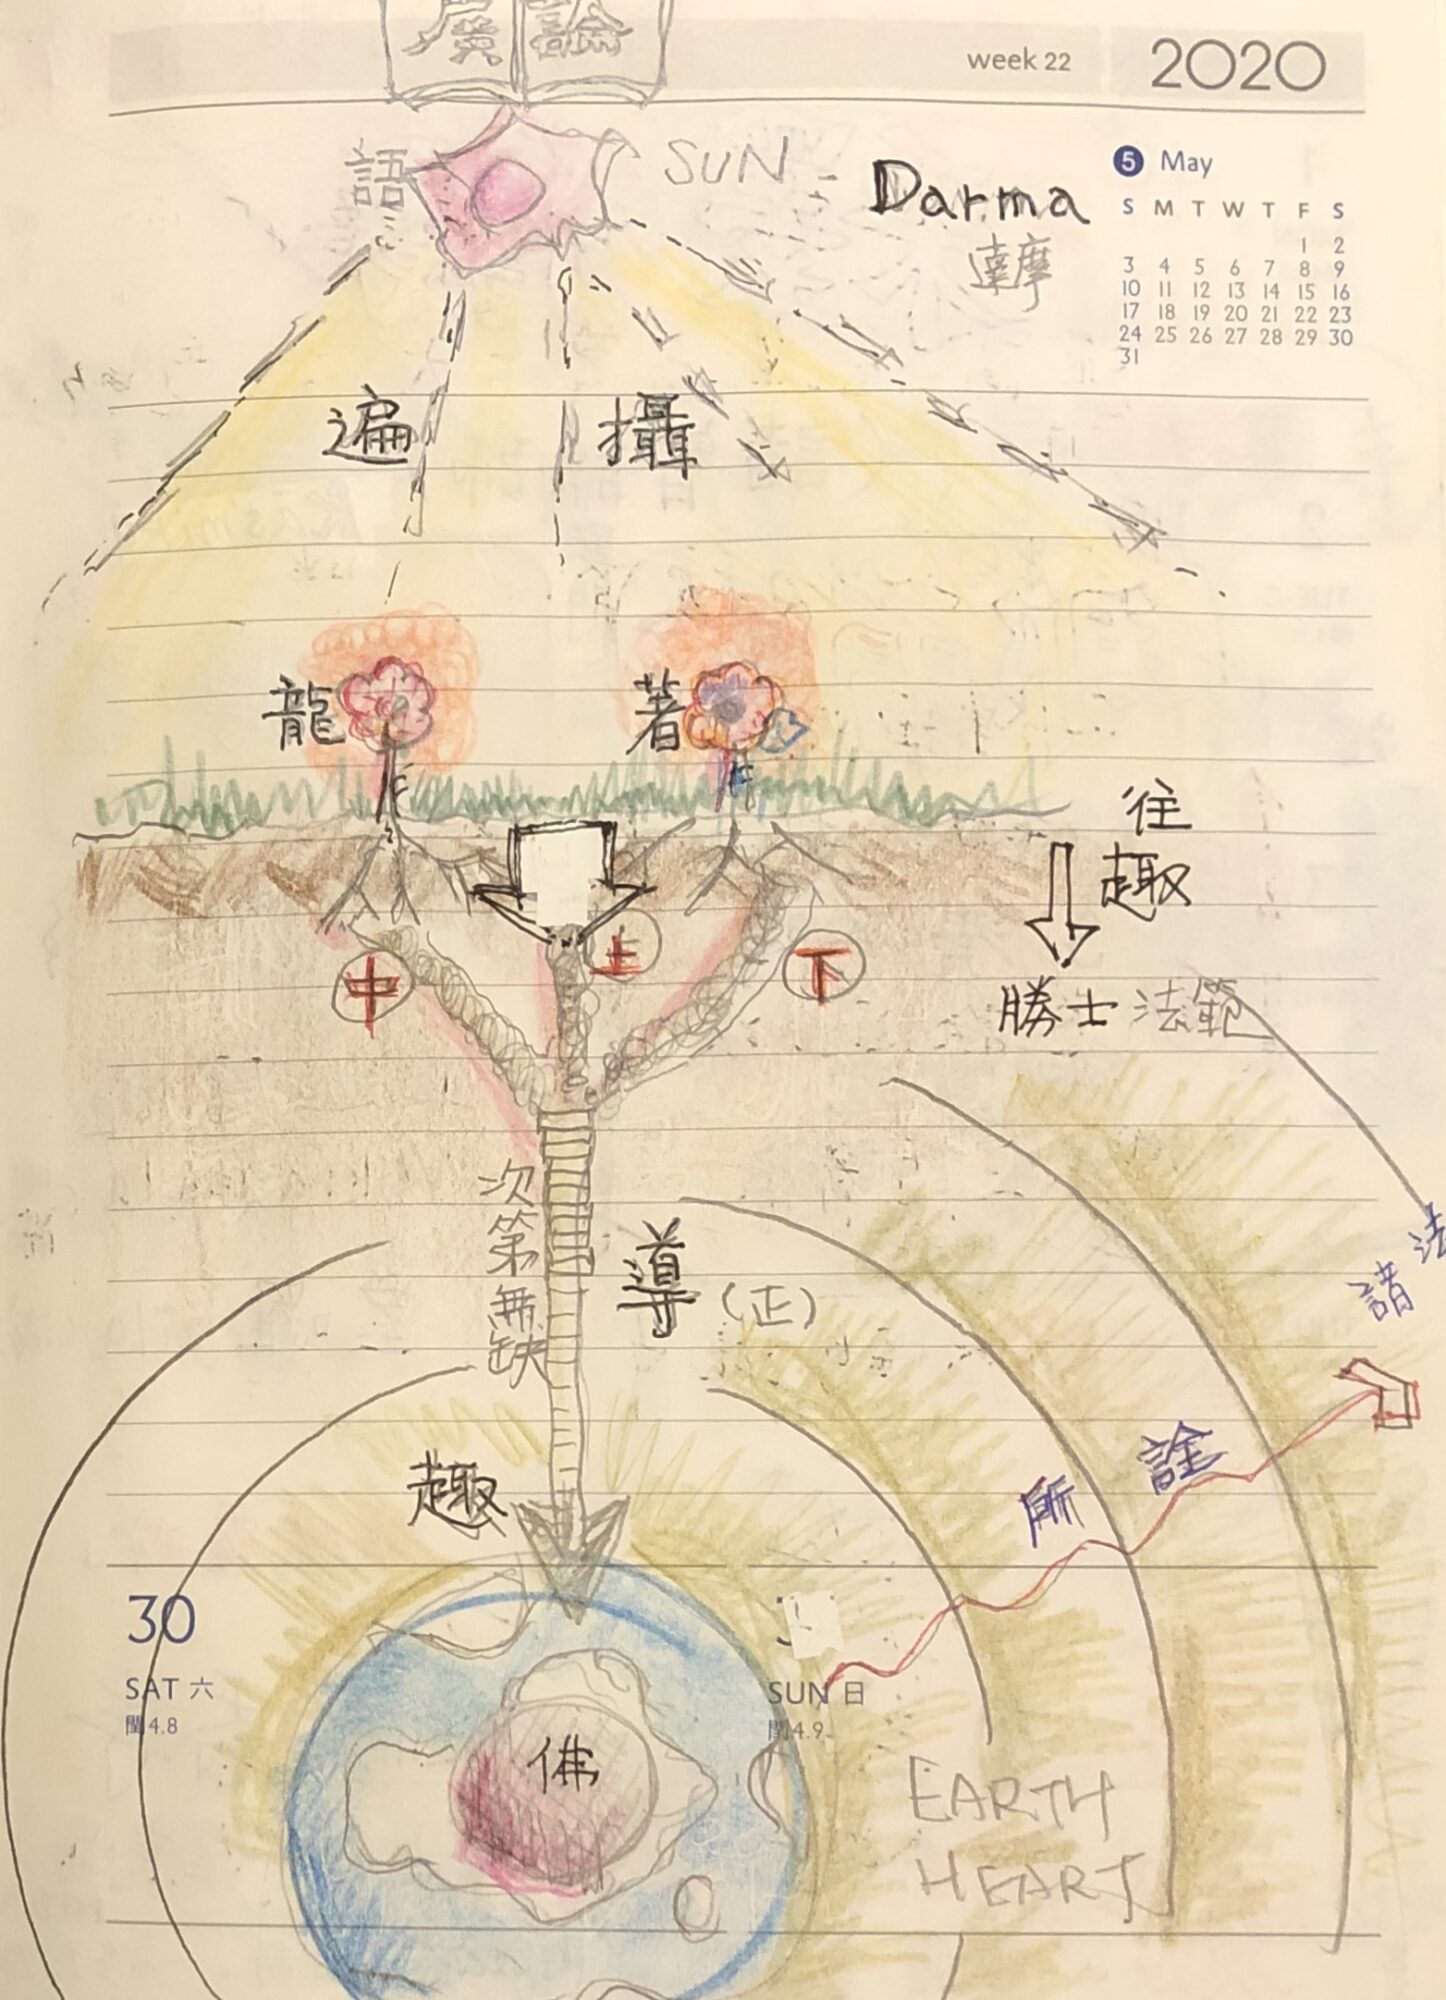 廣 論
week 22 2020
5 May
S M T W T F S
1 2
3 4 5 6 7 8 9
10 11 12 13 14 15 16
17 18 19 20 21 22 23
24 25 26 27 28 29 30
31
語
SUN
Darma
達摩
遍 攝
龍 著
往
趣
勝士法範
中 上 下
次第無缺
導(正)
趣
諸法
所詮
30
SAT 六
閏4.8
SUN 日
閏4.9
佛
EARTH
HEART